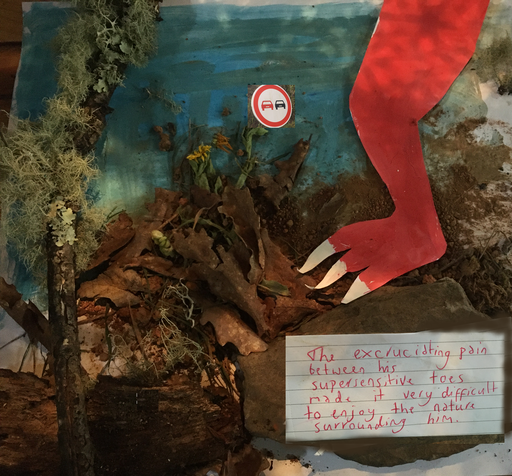 The excruciating pain
between his
supersensitive toes
made it very difficult
to enjoy the nature
surrounding him.